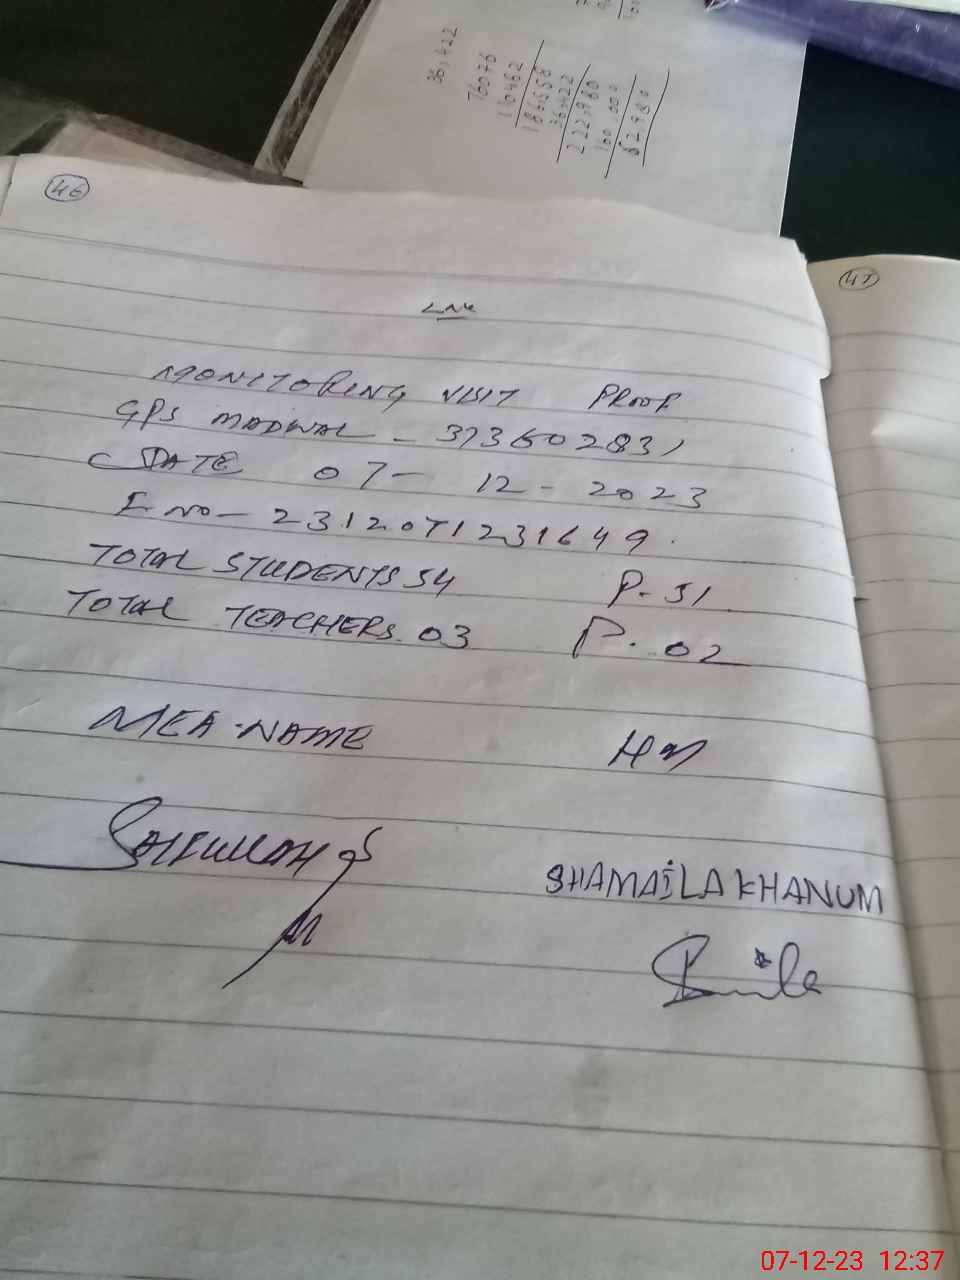 36,422
76076
110482
186558
36,422
222,980
160,000
62,980
46
47
LNK
MONITORING VISIT PROOF
GPS MADWAL - 373602831
DATE 07- 12-2023
E no- 2312071231649.
TOTAL STUDENTS 54 P-51
TOTAL TEACHERS. 03 P. 02
MEA-NAME HM
SHAMAILA KHANUM
07-12-23 12:37